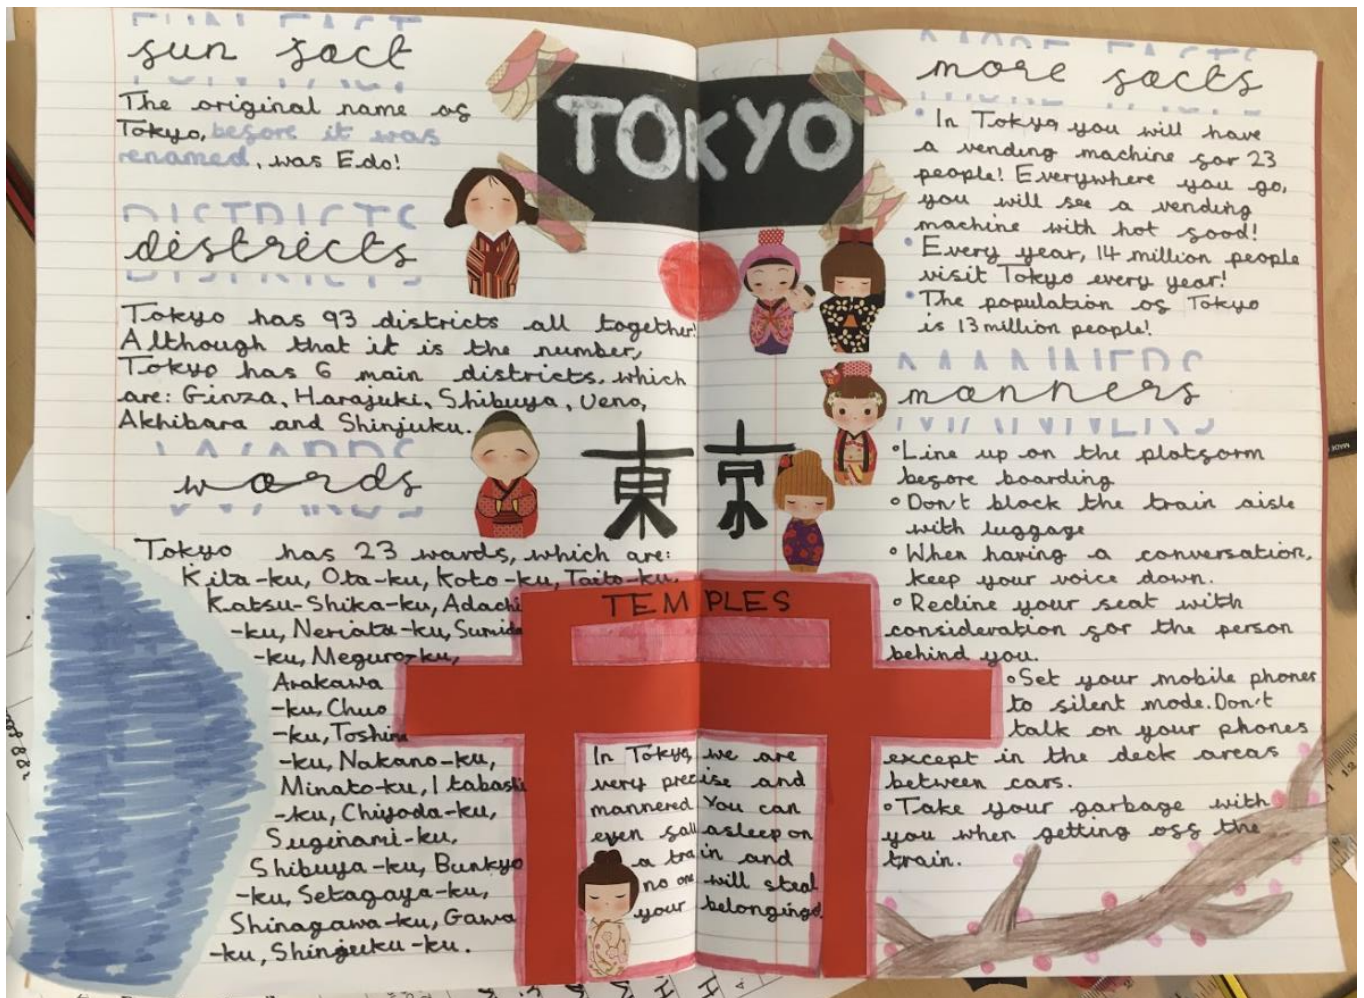 fun fact
The original name of
Tokyo, before it was
renamed, was Edo!
districts
Tokyo has 93 districts all together!
Although that it is the number,
Tokyo has 6 main districts, which
are: Ginza, Harajuki, Shibuya, Ueno,
Akhibara and Shinjuku.
wards
Tokyo has 23 wards, which are:
Kita-ku, Ota-ku, Koto-ku, Taito-ku,
Katsu-Shika-ku, Adachi
-ku, Neriata-ku, Sumida
-ku, Meguro-ku,
Arakawa
-ku, Chuo
-ku, Toshima
-ku, Nakano-ku,
Minato-ku, Itabashi
-ku, Chiyoda-ku,
Suginami-ku,
Shibuya-ku, Bunkyo
-ku, Setagaya-ku,
Shinagawa-ku, Gawa
-ku, Shinjuku-ku.
TOKYO
東京
TEMPLES
In Tokyo, we are
very precise and
mannered. You can
even fall asleep on
a train and
no one will steal
your belongings!
more facts
• In Tokyo, you will have
a vending machine for 23
people! Everywhere you go,
you will see a vending
machine with hot food!
• Every year, 14 million people
visit Tokyo every year!
• The population of Tokyo
is 13 million people!
manners
• Line up on the platform
before boarding
• Don't block the train aisle
with luggage
• When having a conversation,
keep your voice down.
• Recline your seat with
consideration for the person
behind you.
• Set your mobile phones
to silent mode. Don't
talk on your phones
except in the deck areas
between cars.
• Take your garbage with
you when getting off the
train.